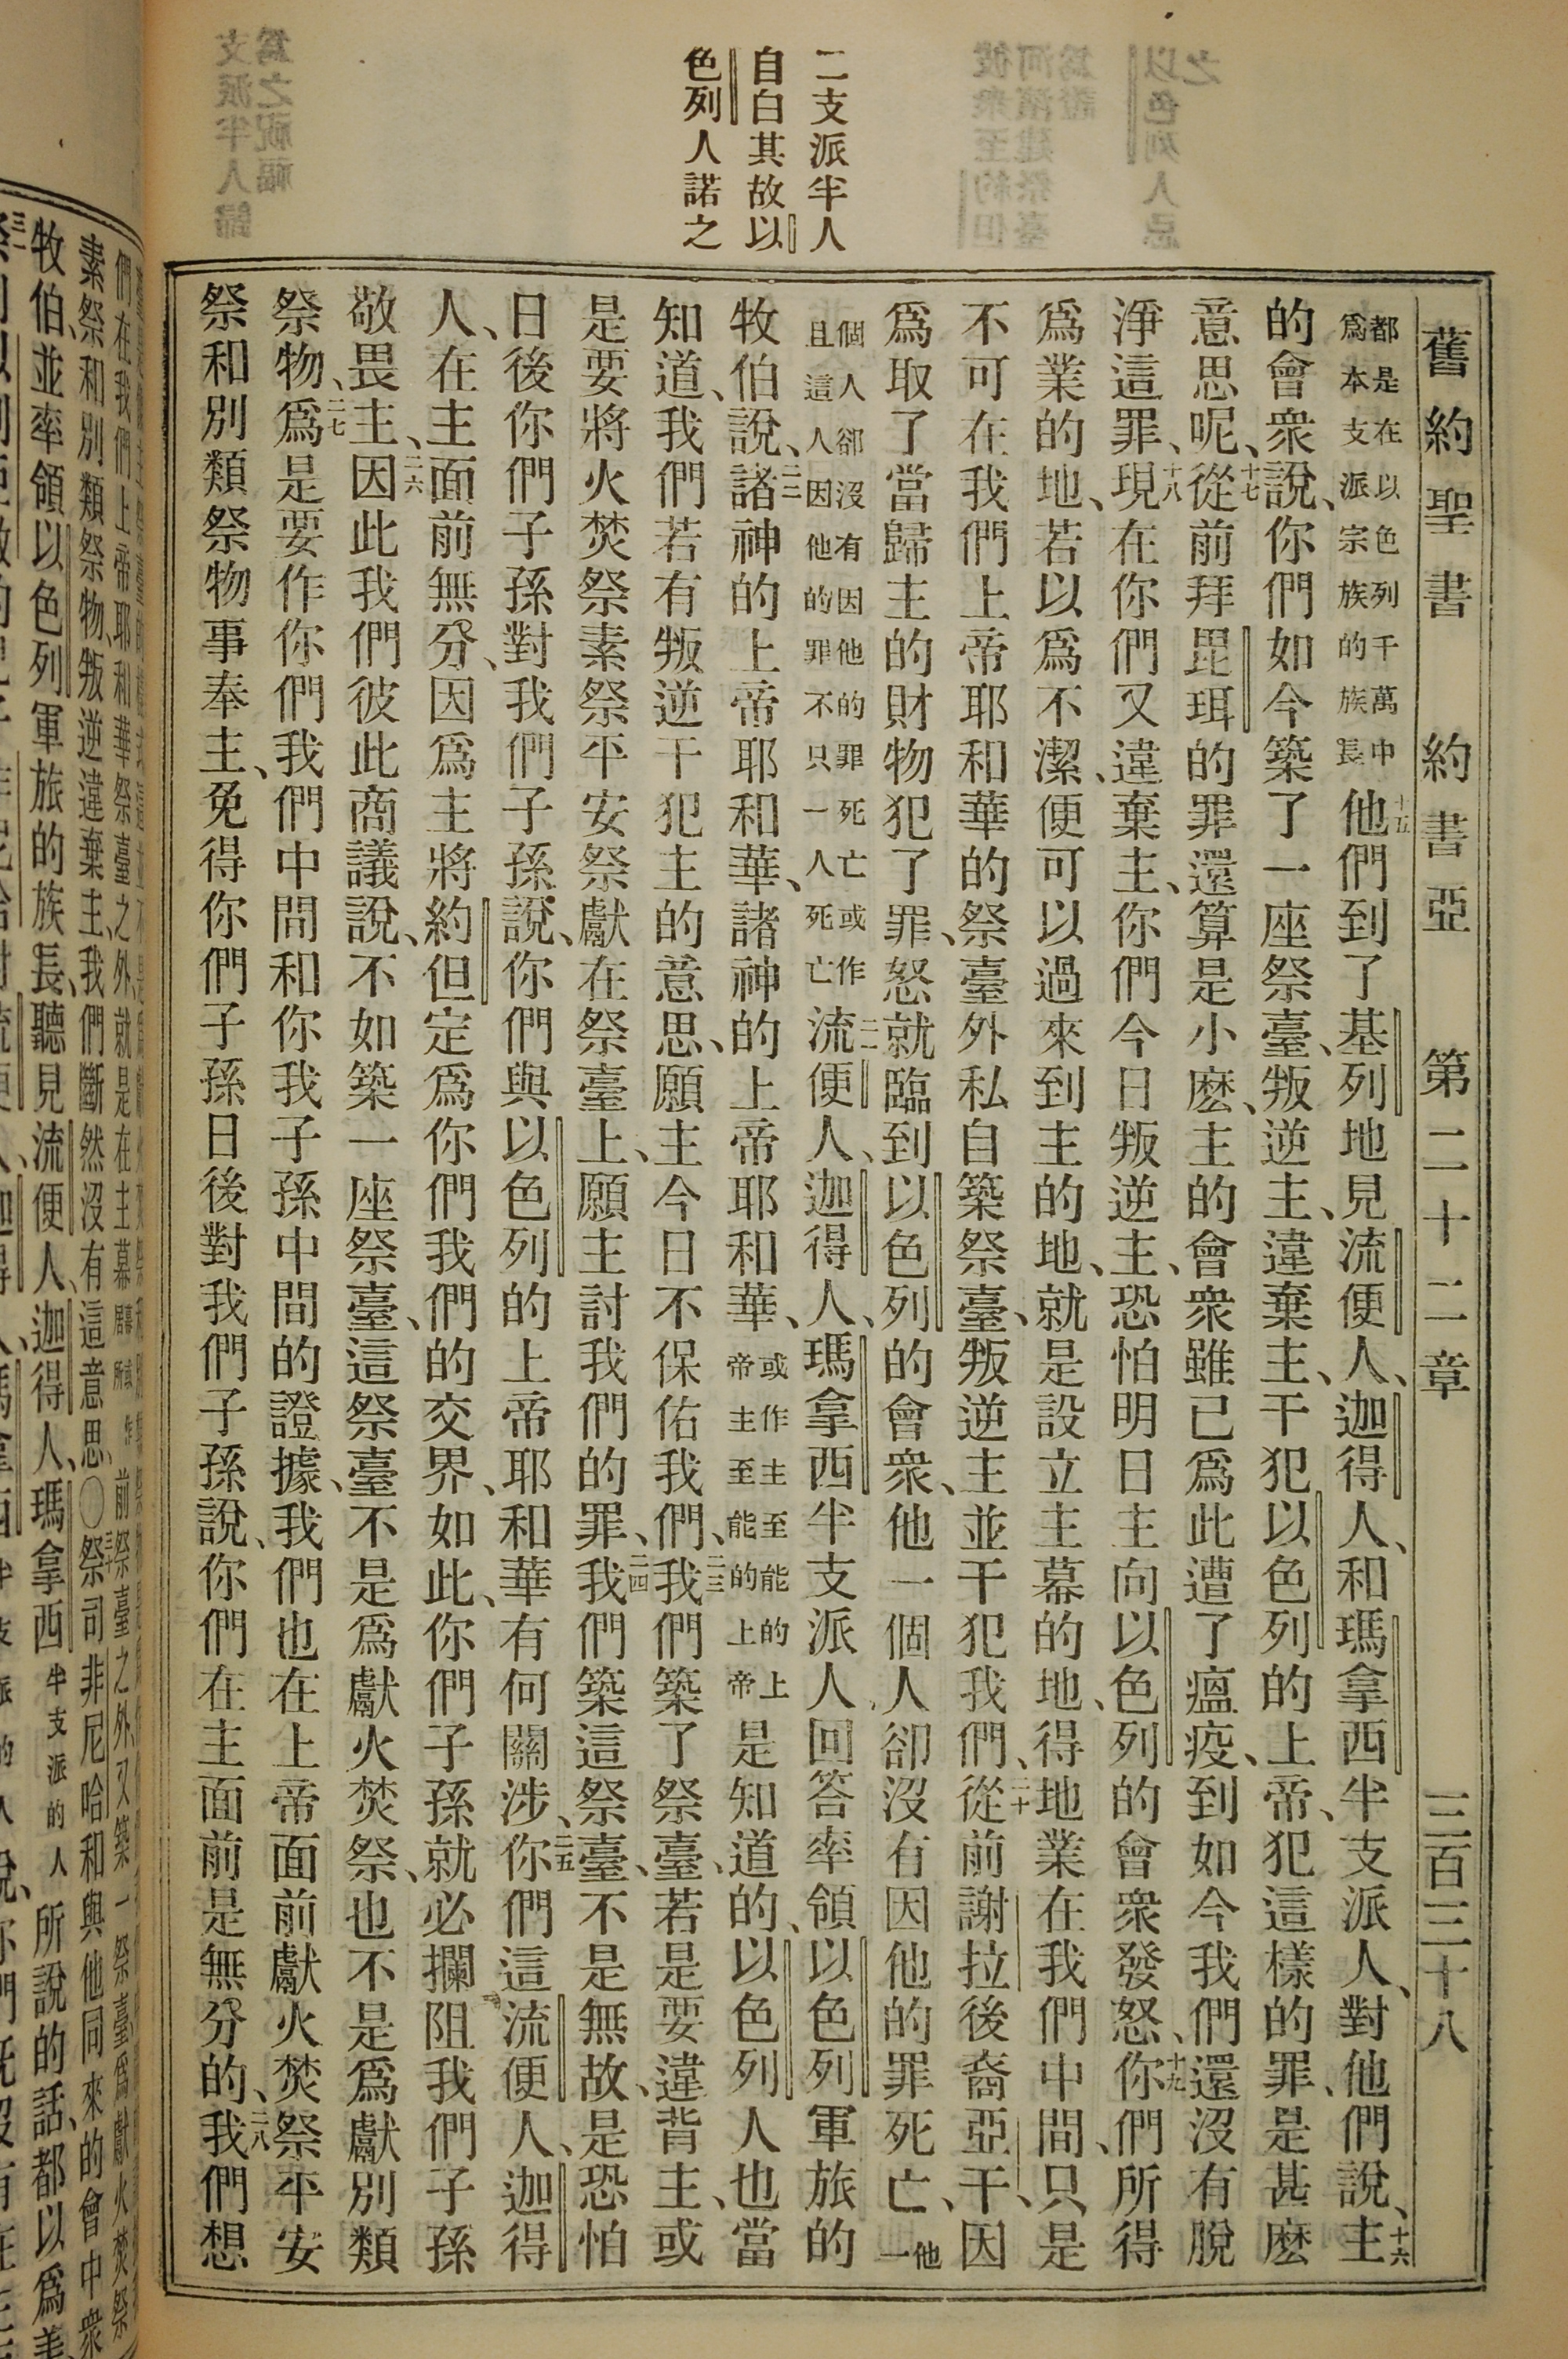 二支派半人
自白其故以
色列人諾之
舊約聖書 約書亞 第二十二章 三百三十八
都是在以色列千萬中
爲本支派宗族的族長
十五他們到了基列地見流便人、迦得人、和瑪拿西半支派人、對他們說、十六主
的會衆說、你們如今築了一座祭臺、叛逆主、違棄主、干犯以色列的上帝、犯這樣的罪、是甚麼
意思呢、十七從前拜毘珥的罪還算是小麽、主的會衆雖已爲此遭了瘟疫、到如今我們還沒有脫
淨這罪、十八現在你們又違棄主、你們今日叛逆主、恐怕明日主向以色列的會衆發怒、十九你們所得
爲業的地、若以爲不潔、便可以過來到主的地、就是設立主幕的地、得地業在我們中間、只是
不可在我們上帝耶和華的祭臺外私自築祭臺、叛逆主並干犯我們、二十從前謝拉後裔亞干、因
爲取了當歸主的財物犯了罪、怒就臨到以色列的會衆、他一個人卻沒有因他的罪死亡、他一
個人卻沒有因他的罪死亡或作
且這人因他的罪不只一人死亡
二一流便人、迦得人、瑪拿西半支派人回答率領以色列軍旅的
牧伯說、二二諸神的上帝耶和華、諸神的上帝耶和華、或作主至能的上帝主至能的上帝是知道的、以色列人也當
知道、我們若有叛逆干犯主的意思、願主今日不保佑我們、二三我們築了祭臺、若是要違背主、或
是要將火焚祭素祭平安祭獻在祭臺上、願主討我們的罪、二四我們築這祭臺、不是無故、是恐怕
日後你們子孫對我們子孫說、你們與以色列的上帝耶和華有何關涉、二五你們這流便人、迦得
人、在主面前無分、因爲主將約但定爲你們我們的交界、如此、你們子孫就必攔阻我們子孫
敬畏主、二六因此我們彼此商議說、不如築一座祭臺、這祭臺不是爲獻火焚祭、也不是爲獻別類
祭物、二七爲是要作你們我們中間和你我子孫中間的證據、我們也在上帝面前獻火焚祭平安
祭和別類祭物事奉主、免得你們子孫日後對我們子孫說、你們在主面前是無分的、二八我們想
們在我們上帝耶和華祭臺之外、就是在主幕
前祭臺之外、又築一祭臺爲獻火焚祭
素祭和別類祭物、叛逆違棄主、我們斷然沒有這意思、〇三十祭司非尼哈和與他同來的會中衆
牧伯、並率領以色列軍旅的族長、聽見流便人、迦得人、瑪拿西半支派的人所說的話、都以爲美